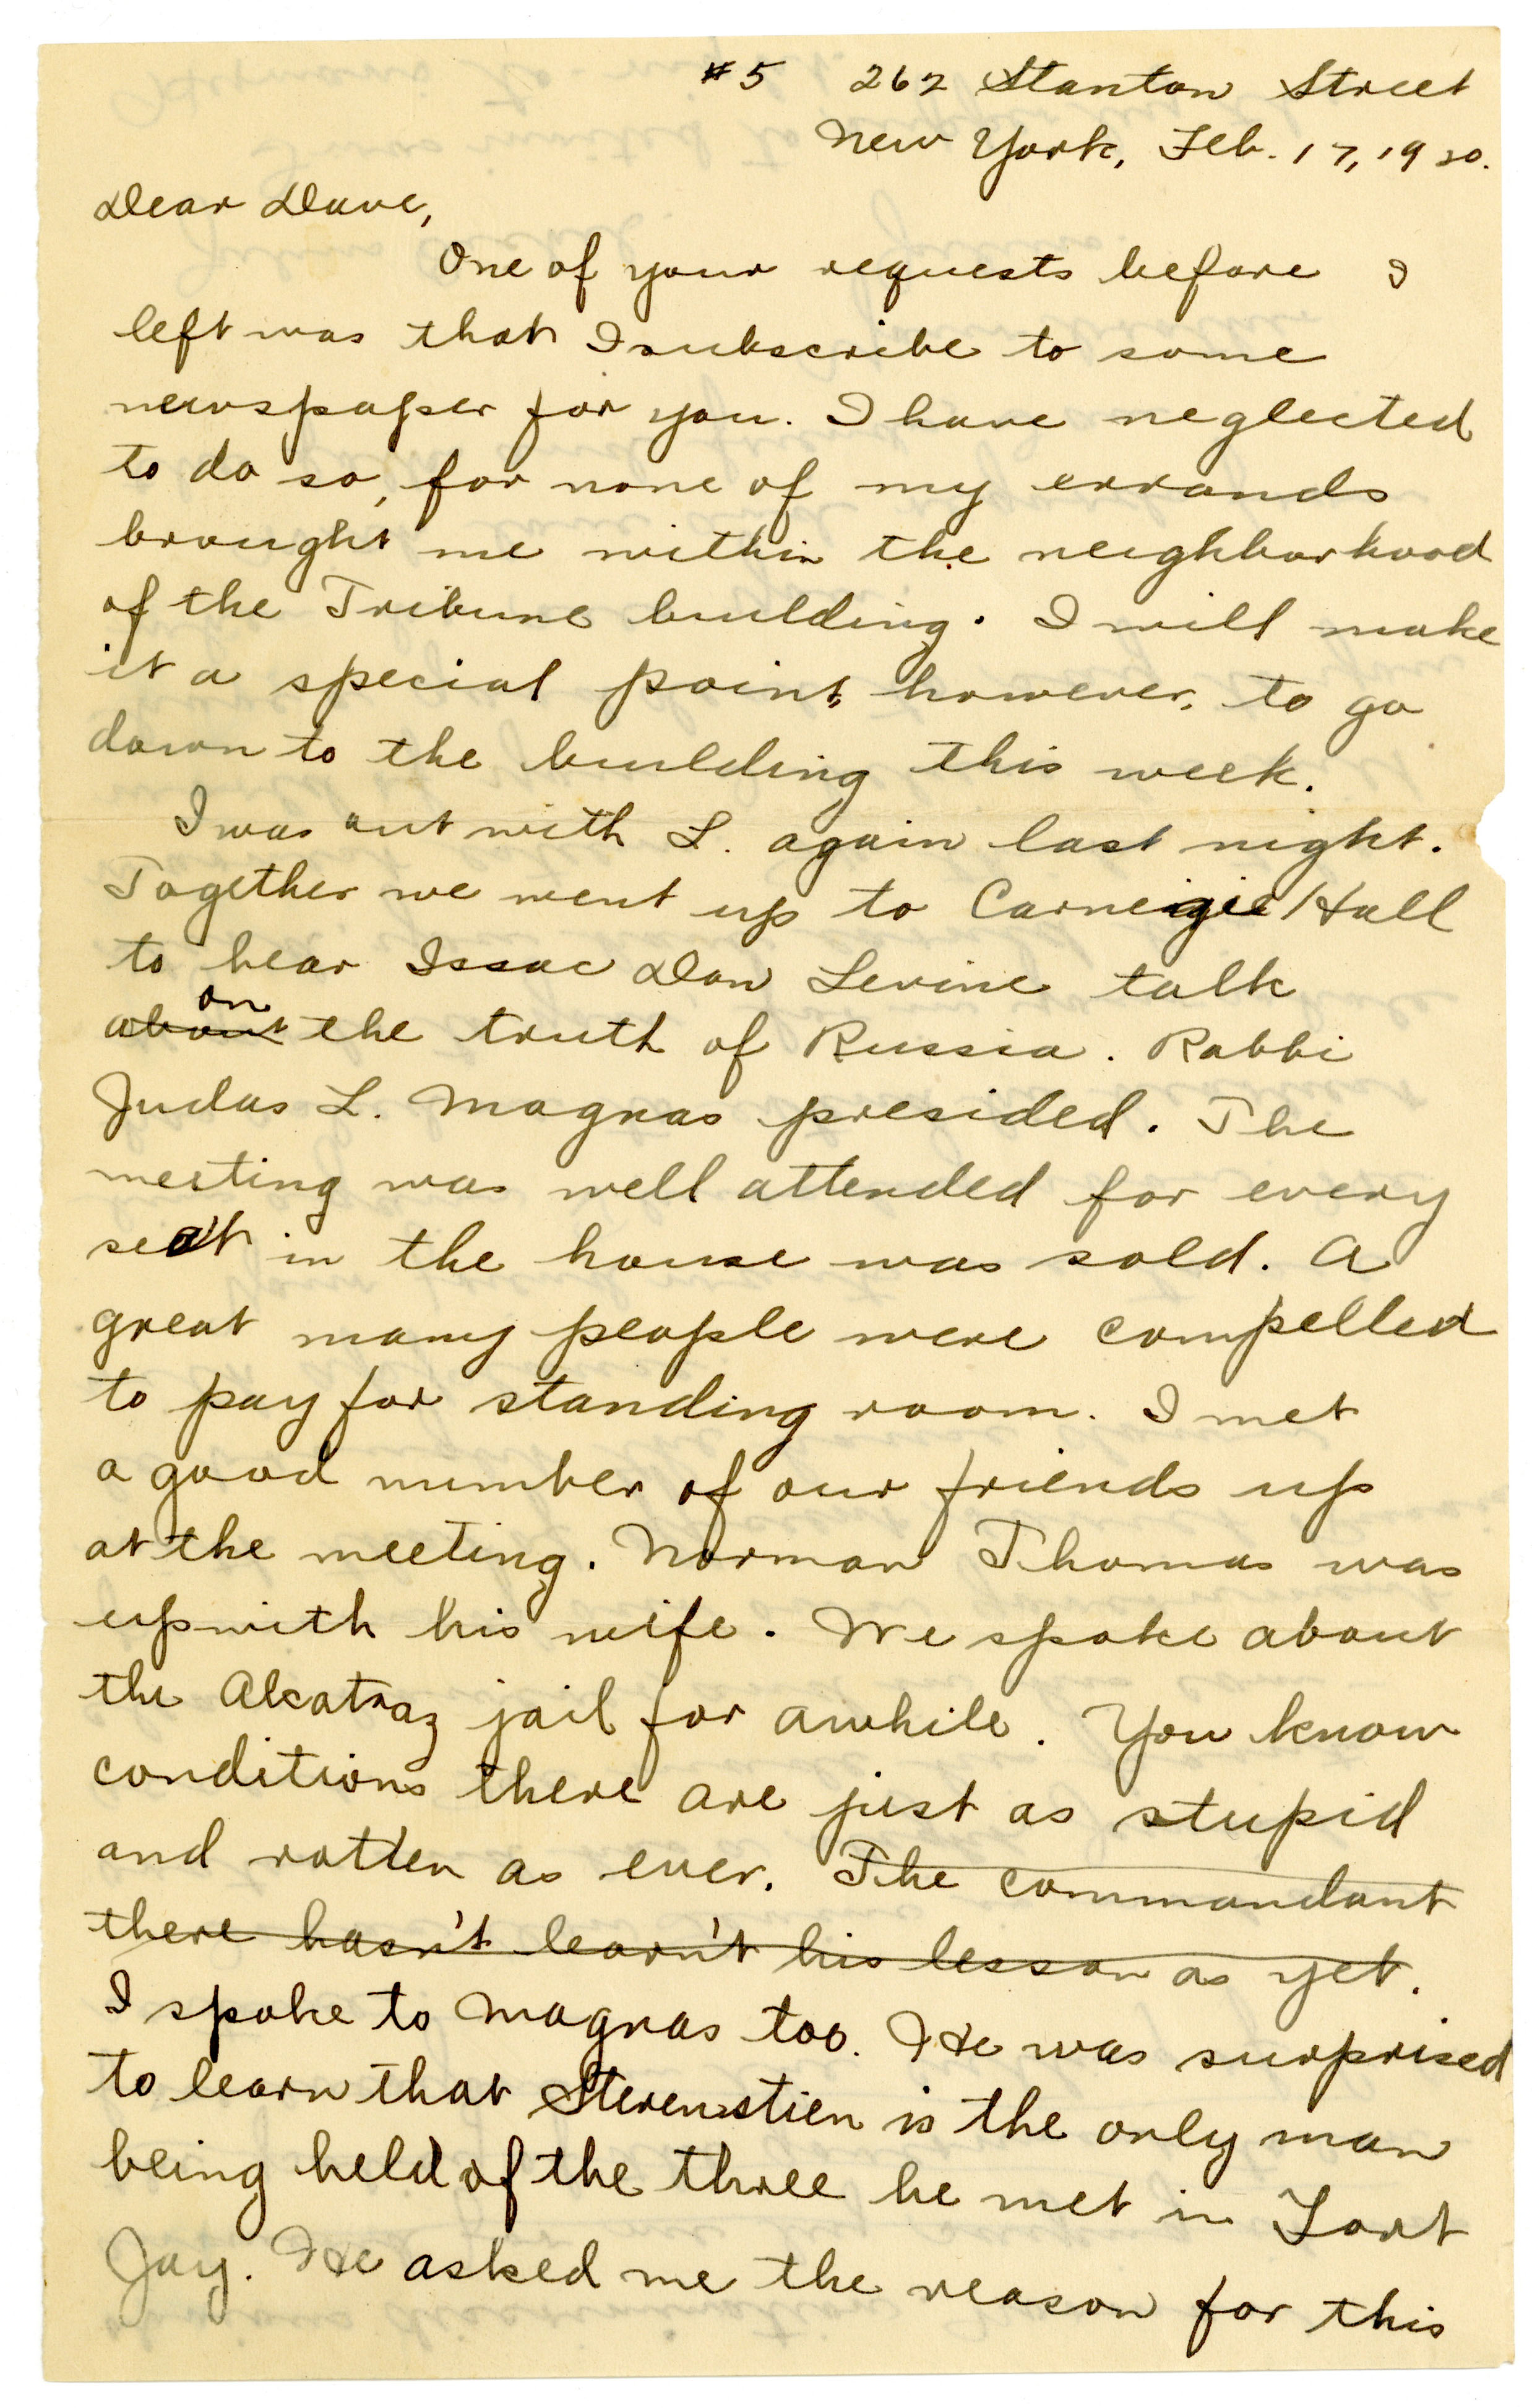 #5 262 Stanton Street
New York, Feb. 17, 1920.
Dear Dave,
One of your requests before I
left was that I subscribe to some
newspaper for you. I have neglected
to do so, for none of my errands
brought me within the neighborhood
of the Tribune building. I will make
it a special point, however, to go
down to the building this week.
I was out with L. again last night.
Together we went up to Carneigie Hall
to hear Issac Don Levine talk
on
about the truth of Russia. Rabbi
Judas L. Magnas presided. The
meeting was well attended for every
seat in the house was sold. A
great many people were compelled
to pay for standing room. I met
a good number of our friends up
at the meeting. Norman Thomas was
up with his wife. We spoke about
the Alcatraz jail for awhile. You know
conditions there are just as stupid
and rotten as ever. The commandant
there hasn't learn't his lesson as yet.
I spoke to Magnas too. He was surprised
to learn that Sterenstien is the only man
being held of the three he met in Fort
Jay. He asked me the reason for this